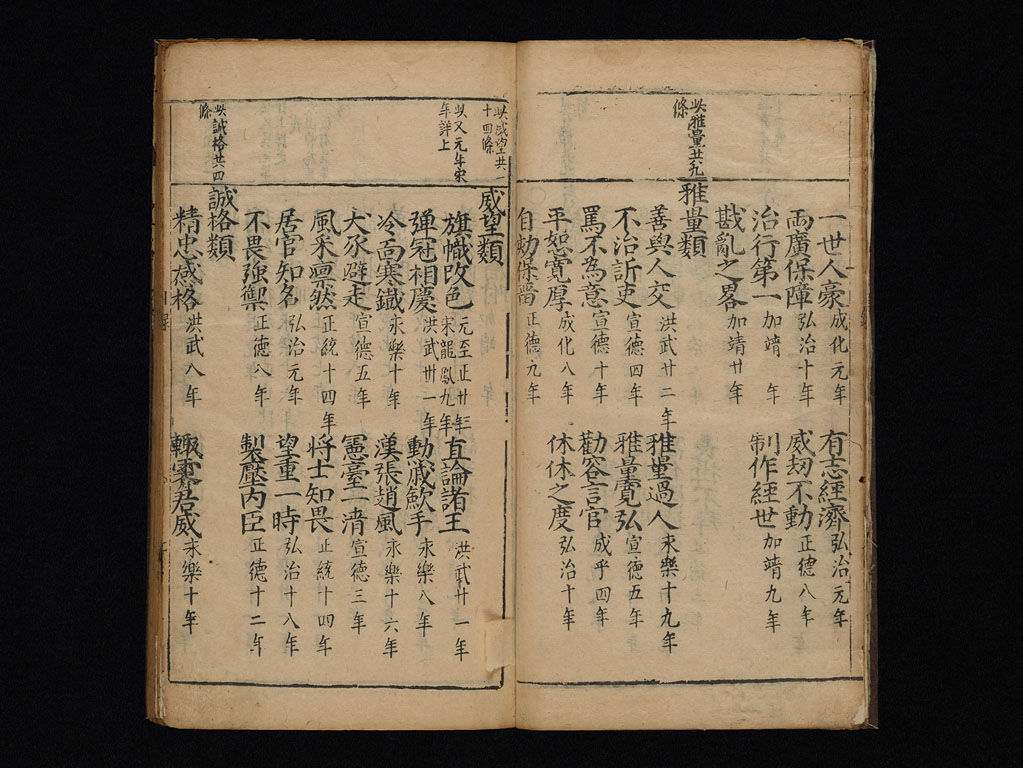 一世人豪成化元年 有志經濟弘治元年
兩廣保障弘治十年 威刼不動正德八年
治行第一加靖 年 制作經世加靖九年
戡亂之畧加靖廿年
此雅量共九
條
雅量類
善與人交洪武廿二年 雅量過人永樂十九年
不治訴吏宣德四年 雅量寬弘宣德五年
罵不為意宣德十年 勸容言官成乎四年
平恕寬厚成化八年 休休之度弘治十年
自劾保晉正德九年
此威望共一
十四條
威望類
此又元年宋
年詳上
旗幟改色元至正廿年宋龍鳳九年 直論諸王洪武廿一年
彈冠相慶洪武卅一年 動減歛手永樂八年
冷面寒鐵永樂十年 漢張趙風永樂十六年
犬豕辟走宣德五年 憲臺一清宣德三年
風采凛然正統十四年 將士知畏正統十四年
居官知名弘治元年 望重一時弘治十八年
不畏強禦正德八年 製壓内臣正德十二年
此誠格共四
條
誠格類
精忠感格洪武八年 輙霽君威永樂十年